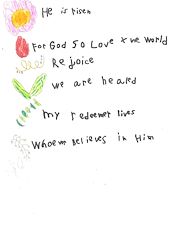 He is risen
For God so Love the world
Rejoice
we are healed
my redeemer lives
Whoem Believes in Him